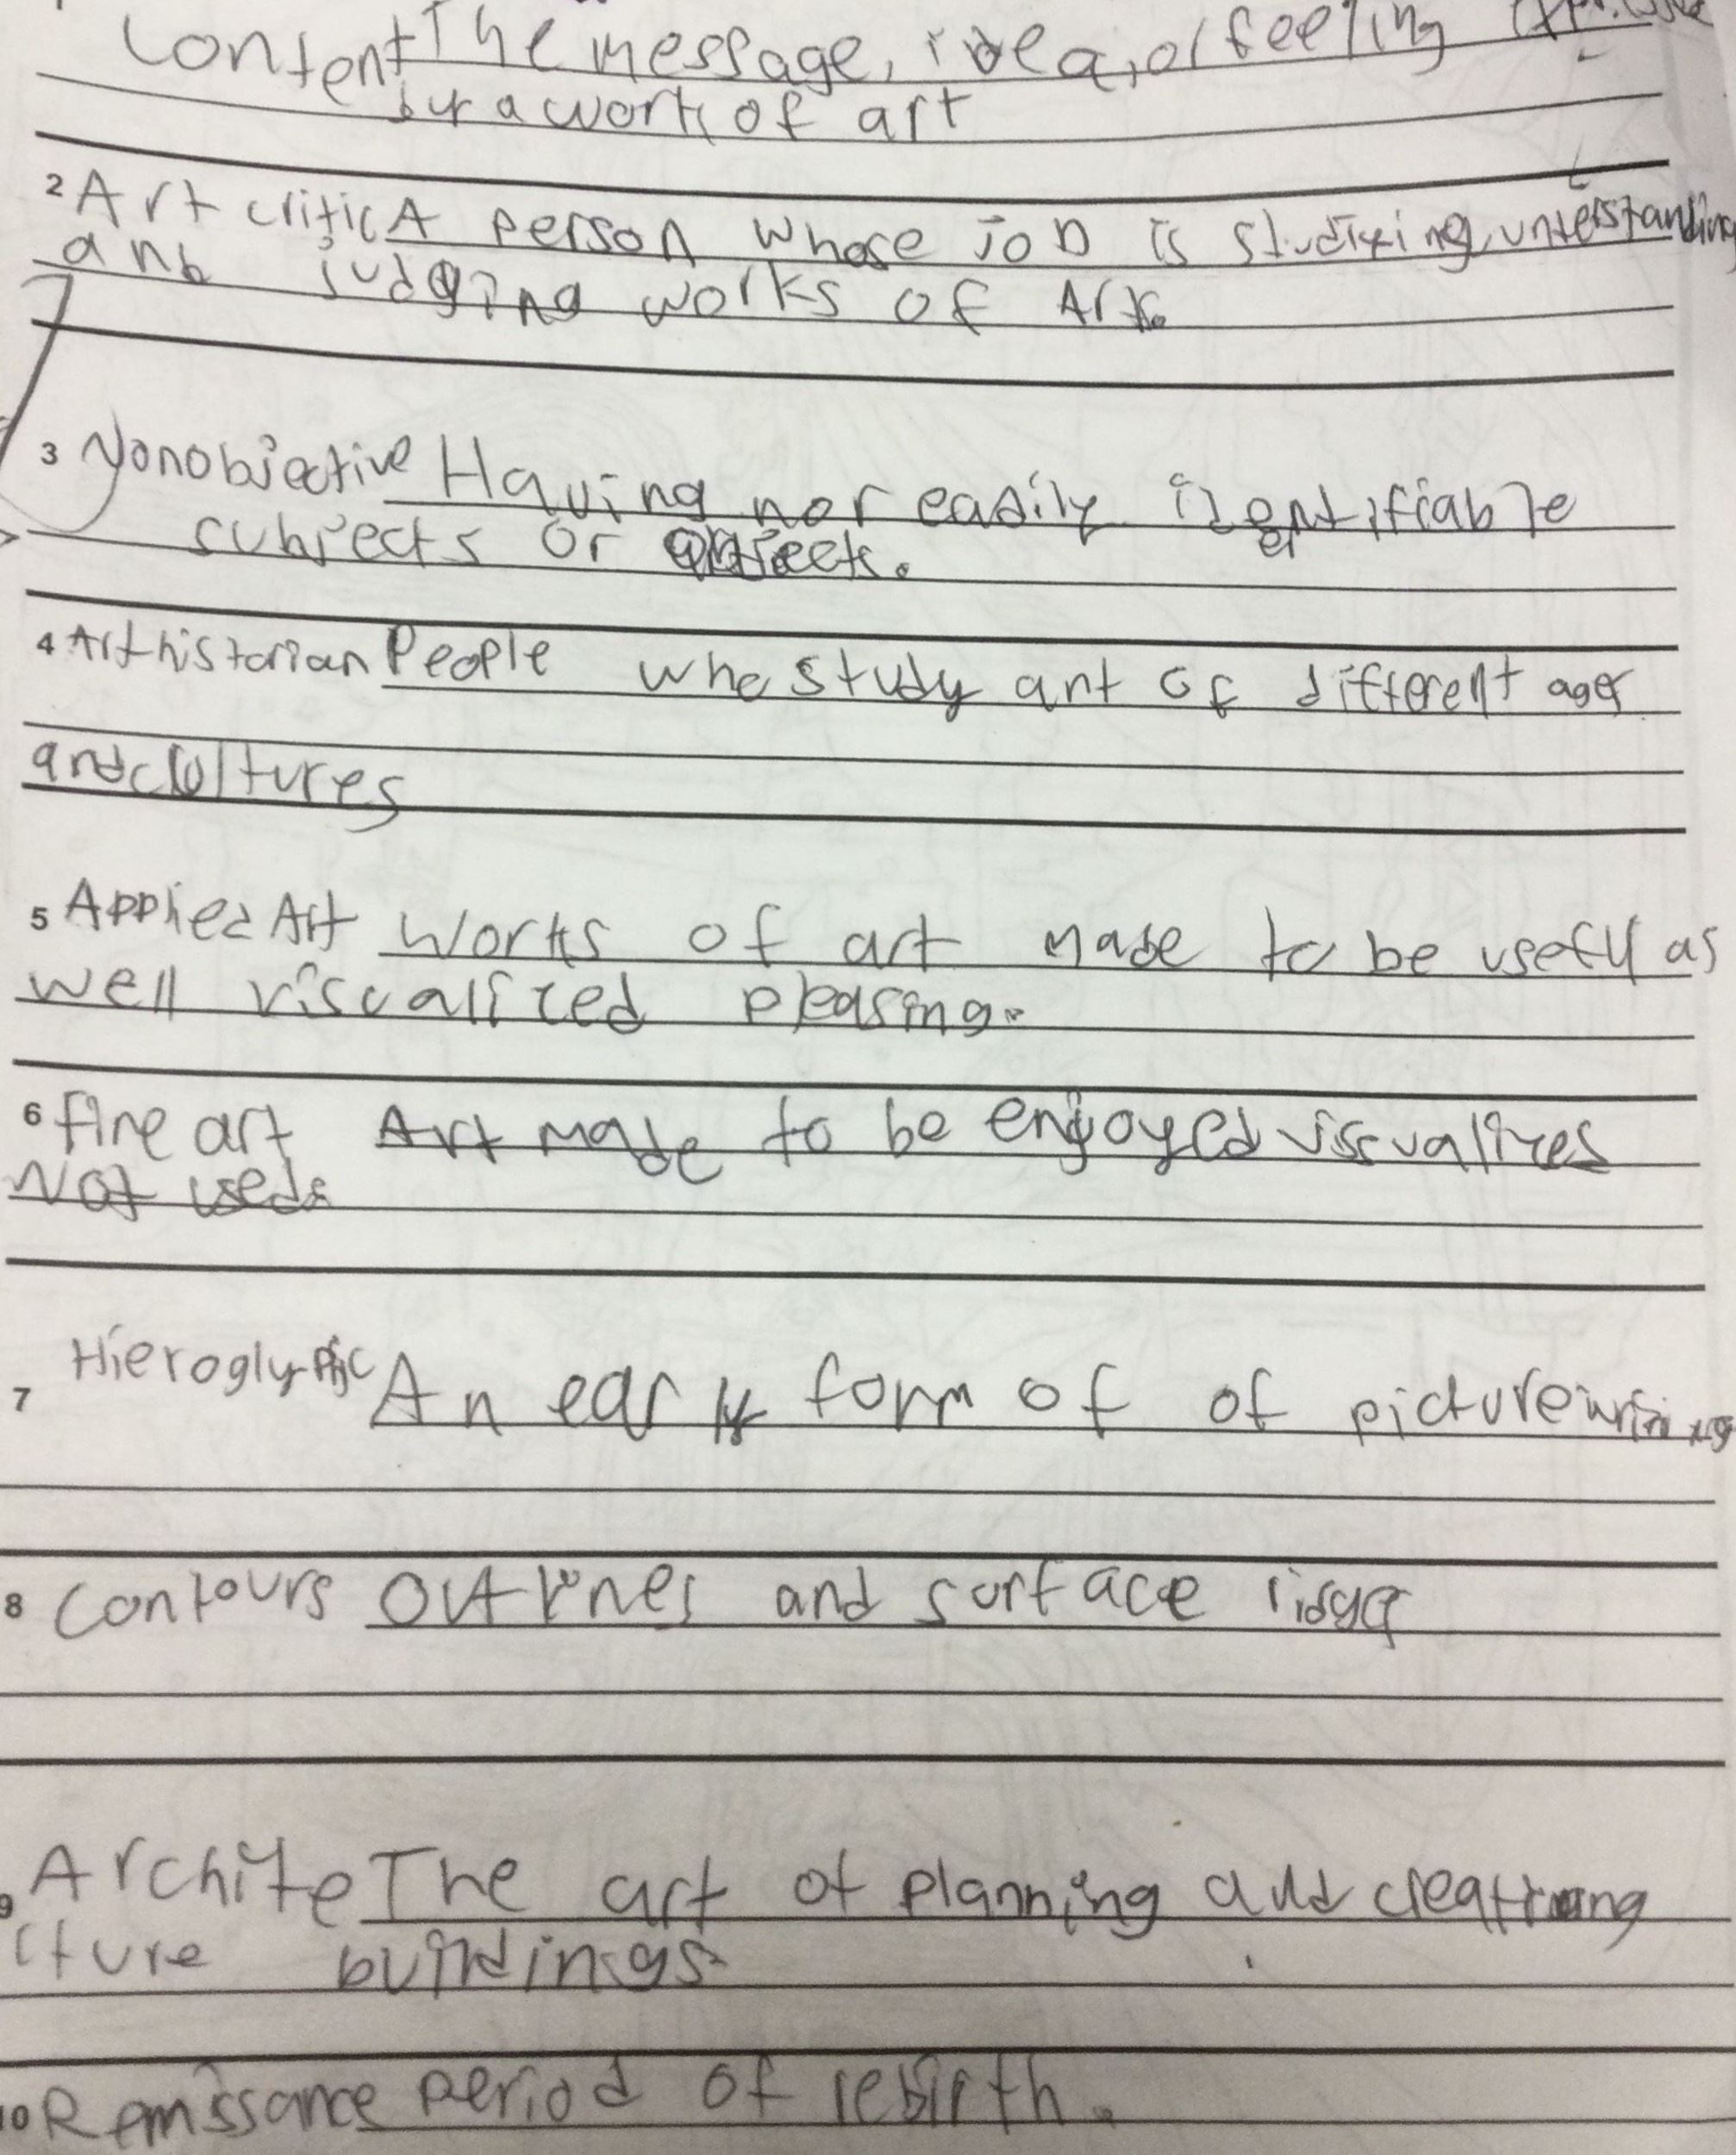 Content The message, idea, or feeling
by a work of art
2 Art critic A person whose job is studixing, understanding
anb judging works of Art.
3 Nonobjective Having nor easily identifiable
subjects or objects.
4 Art historian People who study art of different ages
and cultures
5 Applied Art Works of art made to be useful as
well viscualized pleasing.
6 fine art Art made to be enjoyed viscualizes
Not used.
7 Hieroglyphic An early form of of picture writing
8 Contours Outlines and surface
9 Archite The art of planning and creating
cture buildings
10 Remissance period of rebirth.